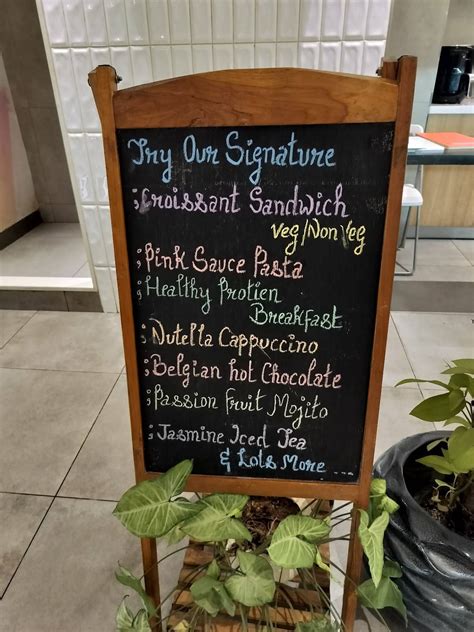 Try Our Signature
; Croissant Sandwich
Veg/Non Veg
; Pink Sauce Pasta
; Healthy Protien
Breakfast
; Nutella Cappuccino
; Belgian hot Chocolate
; Passion Fruit Mojito
; Jasmine Iced Tea
& Lots More ...